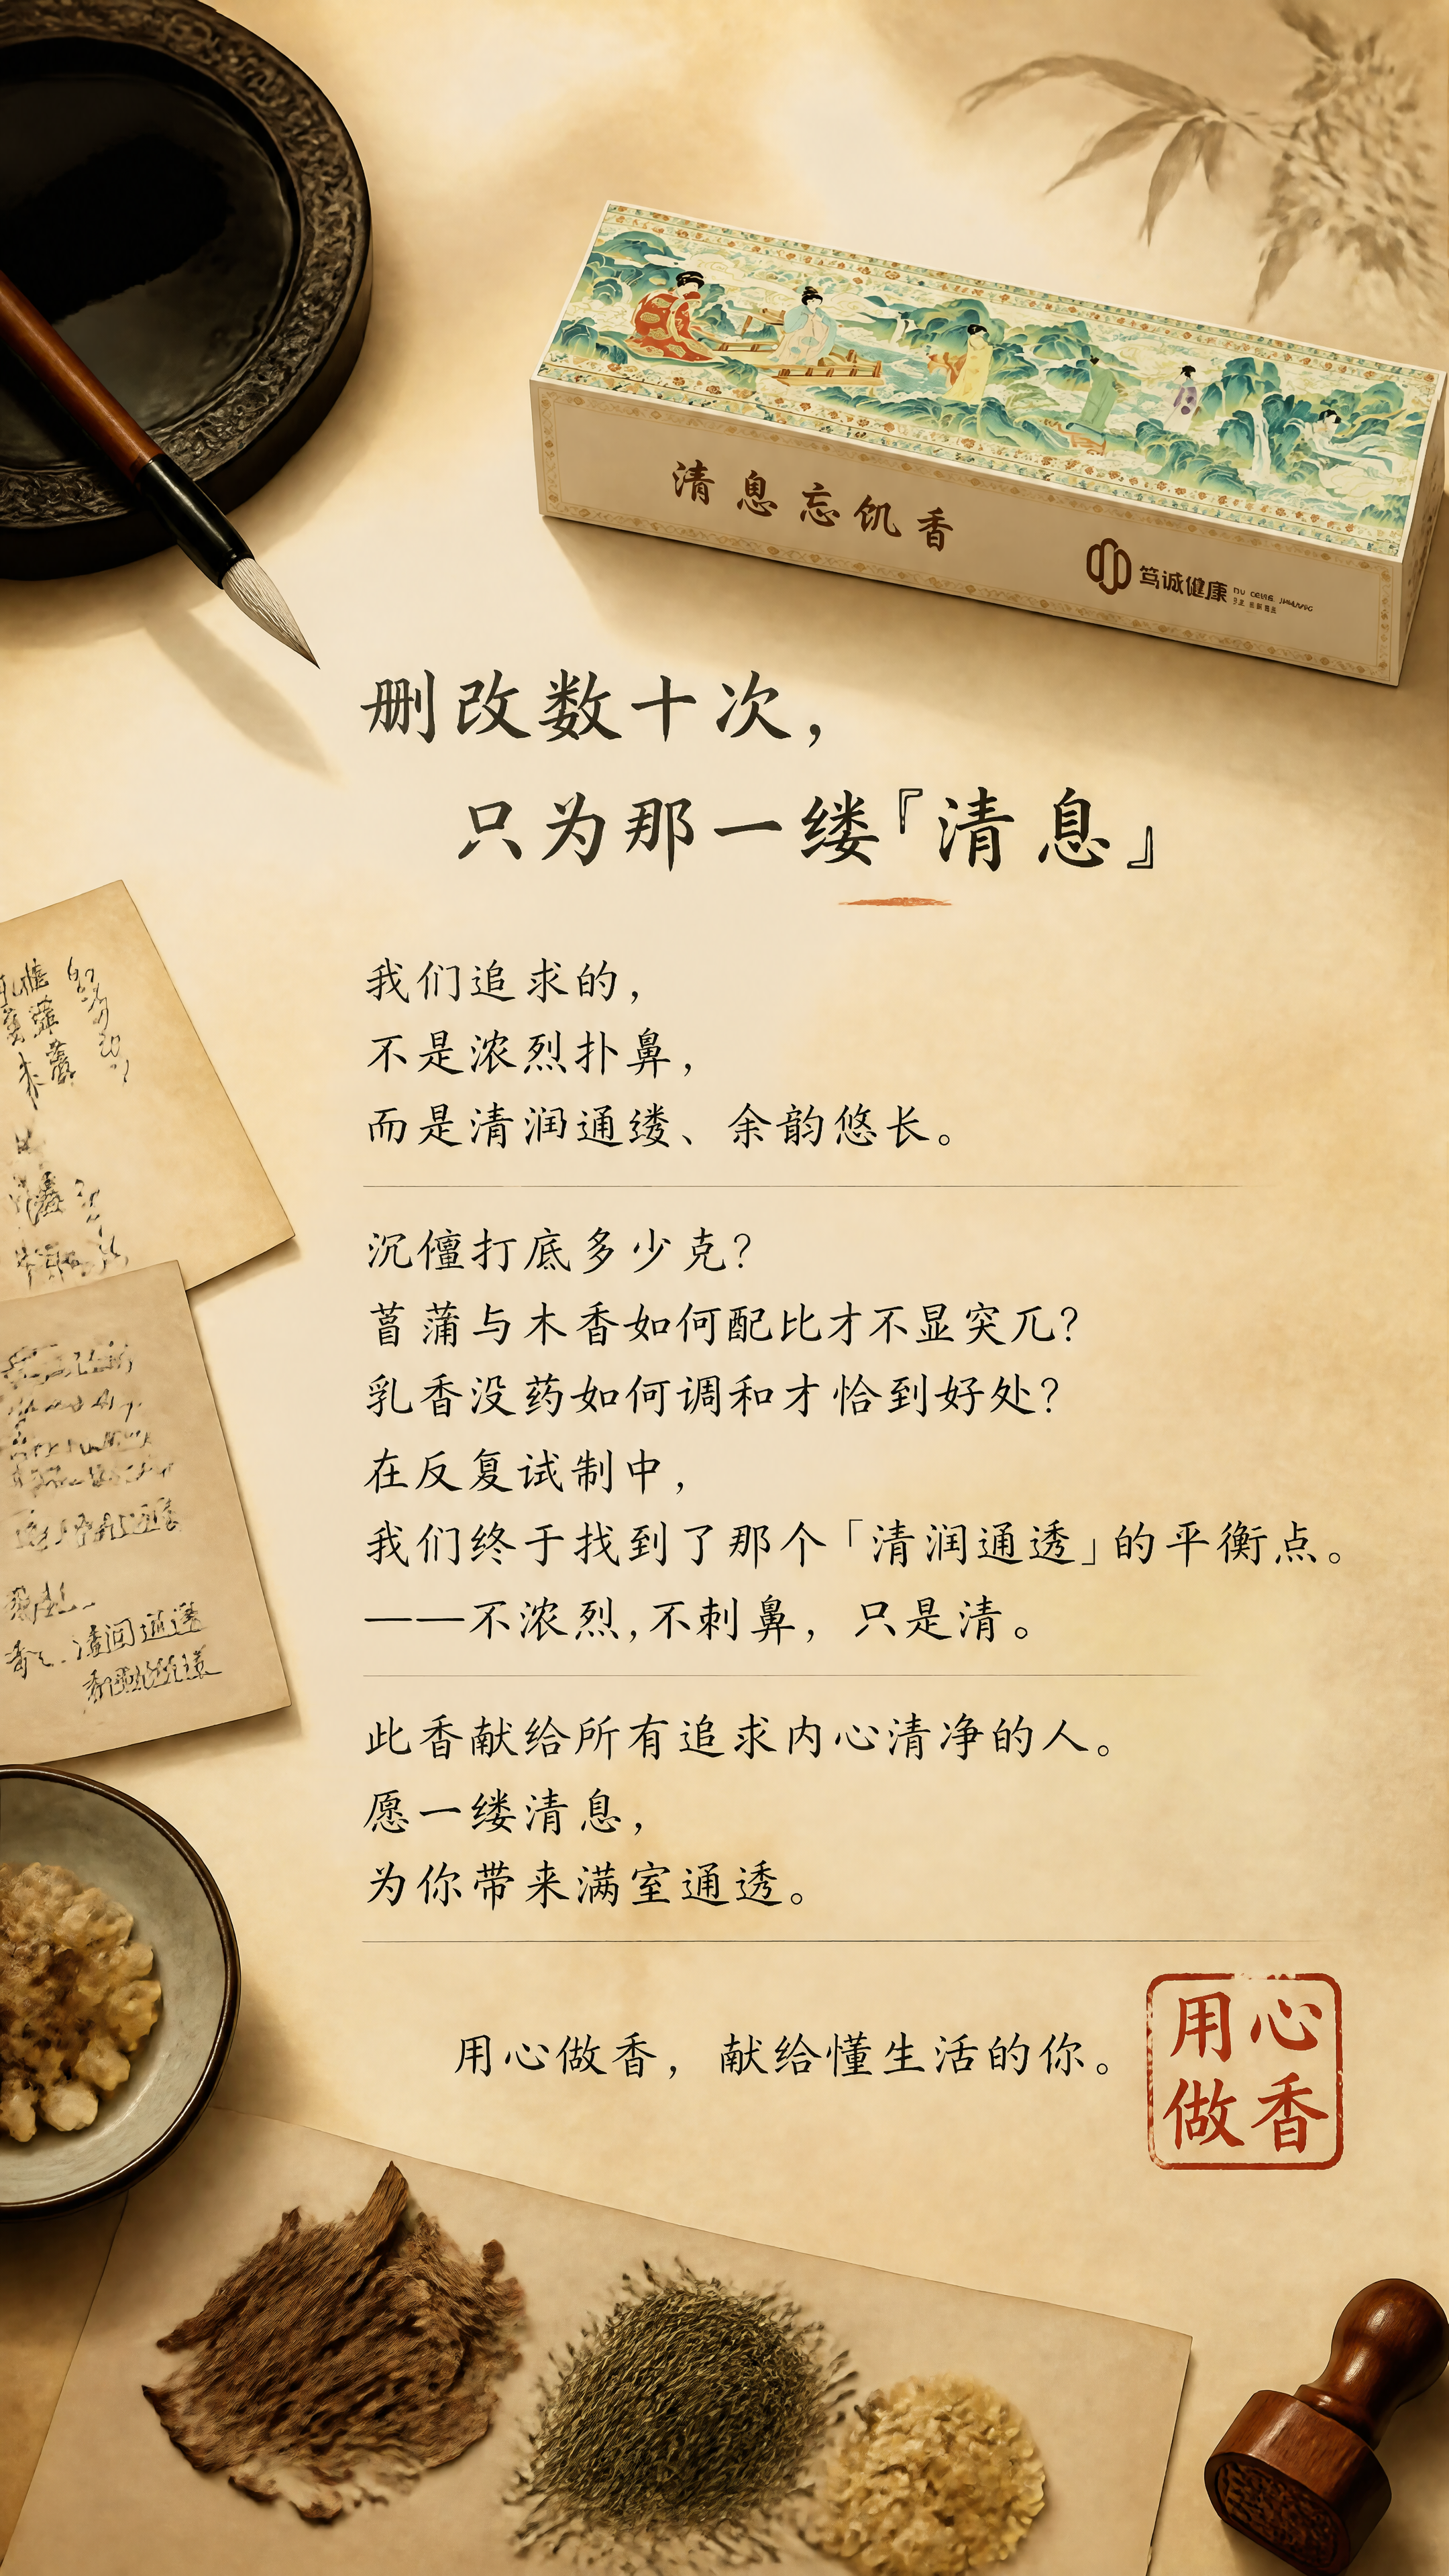 清息忘饥香
笃诚健康
删改数十次，
只为那一缕『清息』
我们追求的，
不是浓烈扑鼻，
而是清润通缕、余韵悠长。
沉儃打底多少克？
菖蒲与木香如何配比才不显突兀？
乳香没药如何调和才恰到好处？
在反复试制中，
我们终于找到了那个「清润通透」的平衡点。
——不浓烈，不刺鼻，只是清。
此香献给所有追求内心清净的人。
愿一缕清息，
为你带来满室通透。
用心做香，献给懂生活的你。
用心
做香